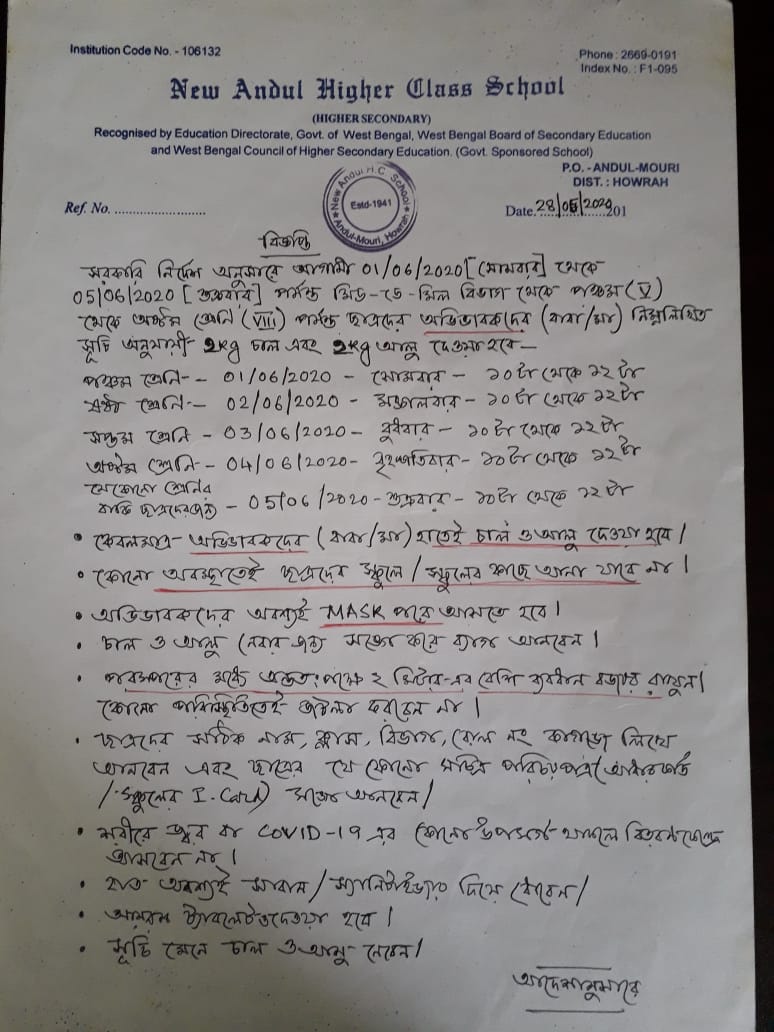 Institution Code No. - 106132
Phone : 2669-0191
Index No. : F1-095
New Andul Higher Class School
(HIGHER SECONDARY)
Recognised by Education Directorate, Govt. of West Bengal, West Bengal Board of Secondary Education
and West Bengal Council of Higher Secondary Education. (Govt. Sponsored School)
P.O. - ANDUL-MOURI
DIST. : HOWRAH
New Andul H.C. School
Estd-1941
Andul-Mouri, Howrah
Ref. No. ..........................
Date. 28/05/2020 201
বিজ্ঞপ্তি
সরকারি নির্দেশ অনুসারে আগামী 01/06/2020 [সোমবার] থেকে
05/06/2020 [শুক্রবার] পর্যন্ত মিড-ডে-মিল বিভাগ থেকে পঞ্চম (V)
থেকে অষ্টম শ্রেনি (VIII) পর্যন্ত ছাত্রদের অভিভাবকদের (বাবা/মা) নিম্নলিখিত
সূচি অনুযায়ী 2kg চাল এবং 2kg আলু দেওয়া হবে—
পঞ্চম শ্রেনি - 01/06/2020 - সোমবার - ১০টা থেকে ১২টা
ষষ্ঠ শ্রেনি - 02/06/2020 - মঙ্গলবার - ১০টা থেকে ১২টা
সপ্তম শ্রেনি - 03/06/2020 - বুধবার - ১০টা থেকে ১২টা
অষ্টম শ্রেনি - 04/06/2020 - বৃহস্পতিবার - ১০টা থেকে ১২টা
যেকোনো শ্রেনির
বাকি ছাত্রদের জন্য - 05/06/2020 - শুক্রবার - ১০টা থেকে ১২টা
• কেবলমাত্র অভিভাবকদের (বাবা/মা) হাতেই চাল ও আলু দেওয়া হবে।
• কোনো অবস্থাতেই ছাত্রদের স্কুলে/স্কুলের কাছে আনা যাবে না।
• অভিভাবকদের অবশ্যই MASK পরে আসতে হবে।
• চাল ও আলু নেবার জন্য সঙ্গে করে ব্যাগ আনবেন।
• পরস্পরের মধ্যে অন্ততঃপক্ষে ২ মিটার-এর বেশি ব্যবধান বজায় রাখুন।
কোনো পরিস্থিতিতেই জটলা করবেন না।
• ছাত্রদের সঠিক নাম, ক্লাস, বিভাগ, রোল নং কাগজে লিখে
আনবেন এবং ছাত্রের যে কোনো সচিত্র পরিচয়পত্র (আধারকার্ড
/স্কুলের I. Card) সঙ্গে আনবেন।
• শরীরে জ্বর বা COVID-19 এর কোনো উপসর্গ থাকলে বিতরণকেন্দ্রে
আসবেন না।
• হাত অবশ্যই সাবান/স্যানিটাইজার দিয়ে ধোবেন।
• আয়রন ট্যাবলেটও দেওয়া হবে।
• সূচি মেনে চাল ও আলু নেবেন।
আদেশানুসারে